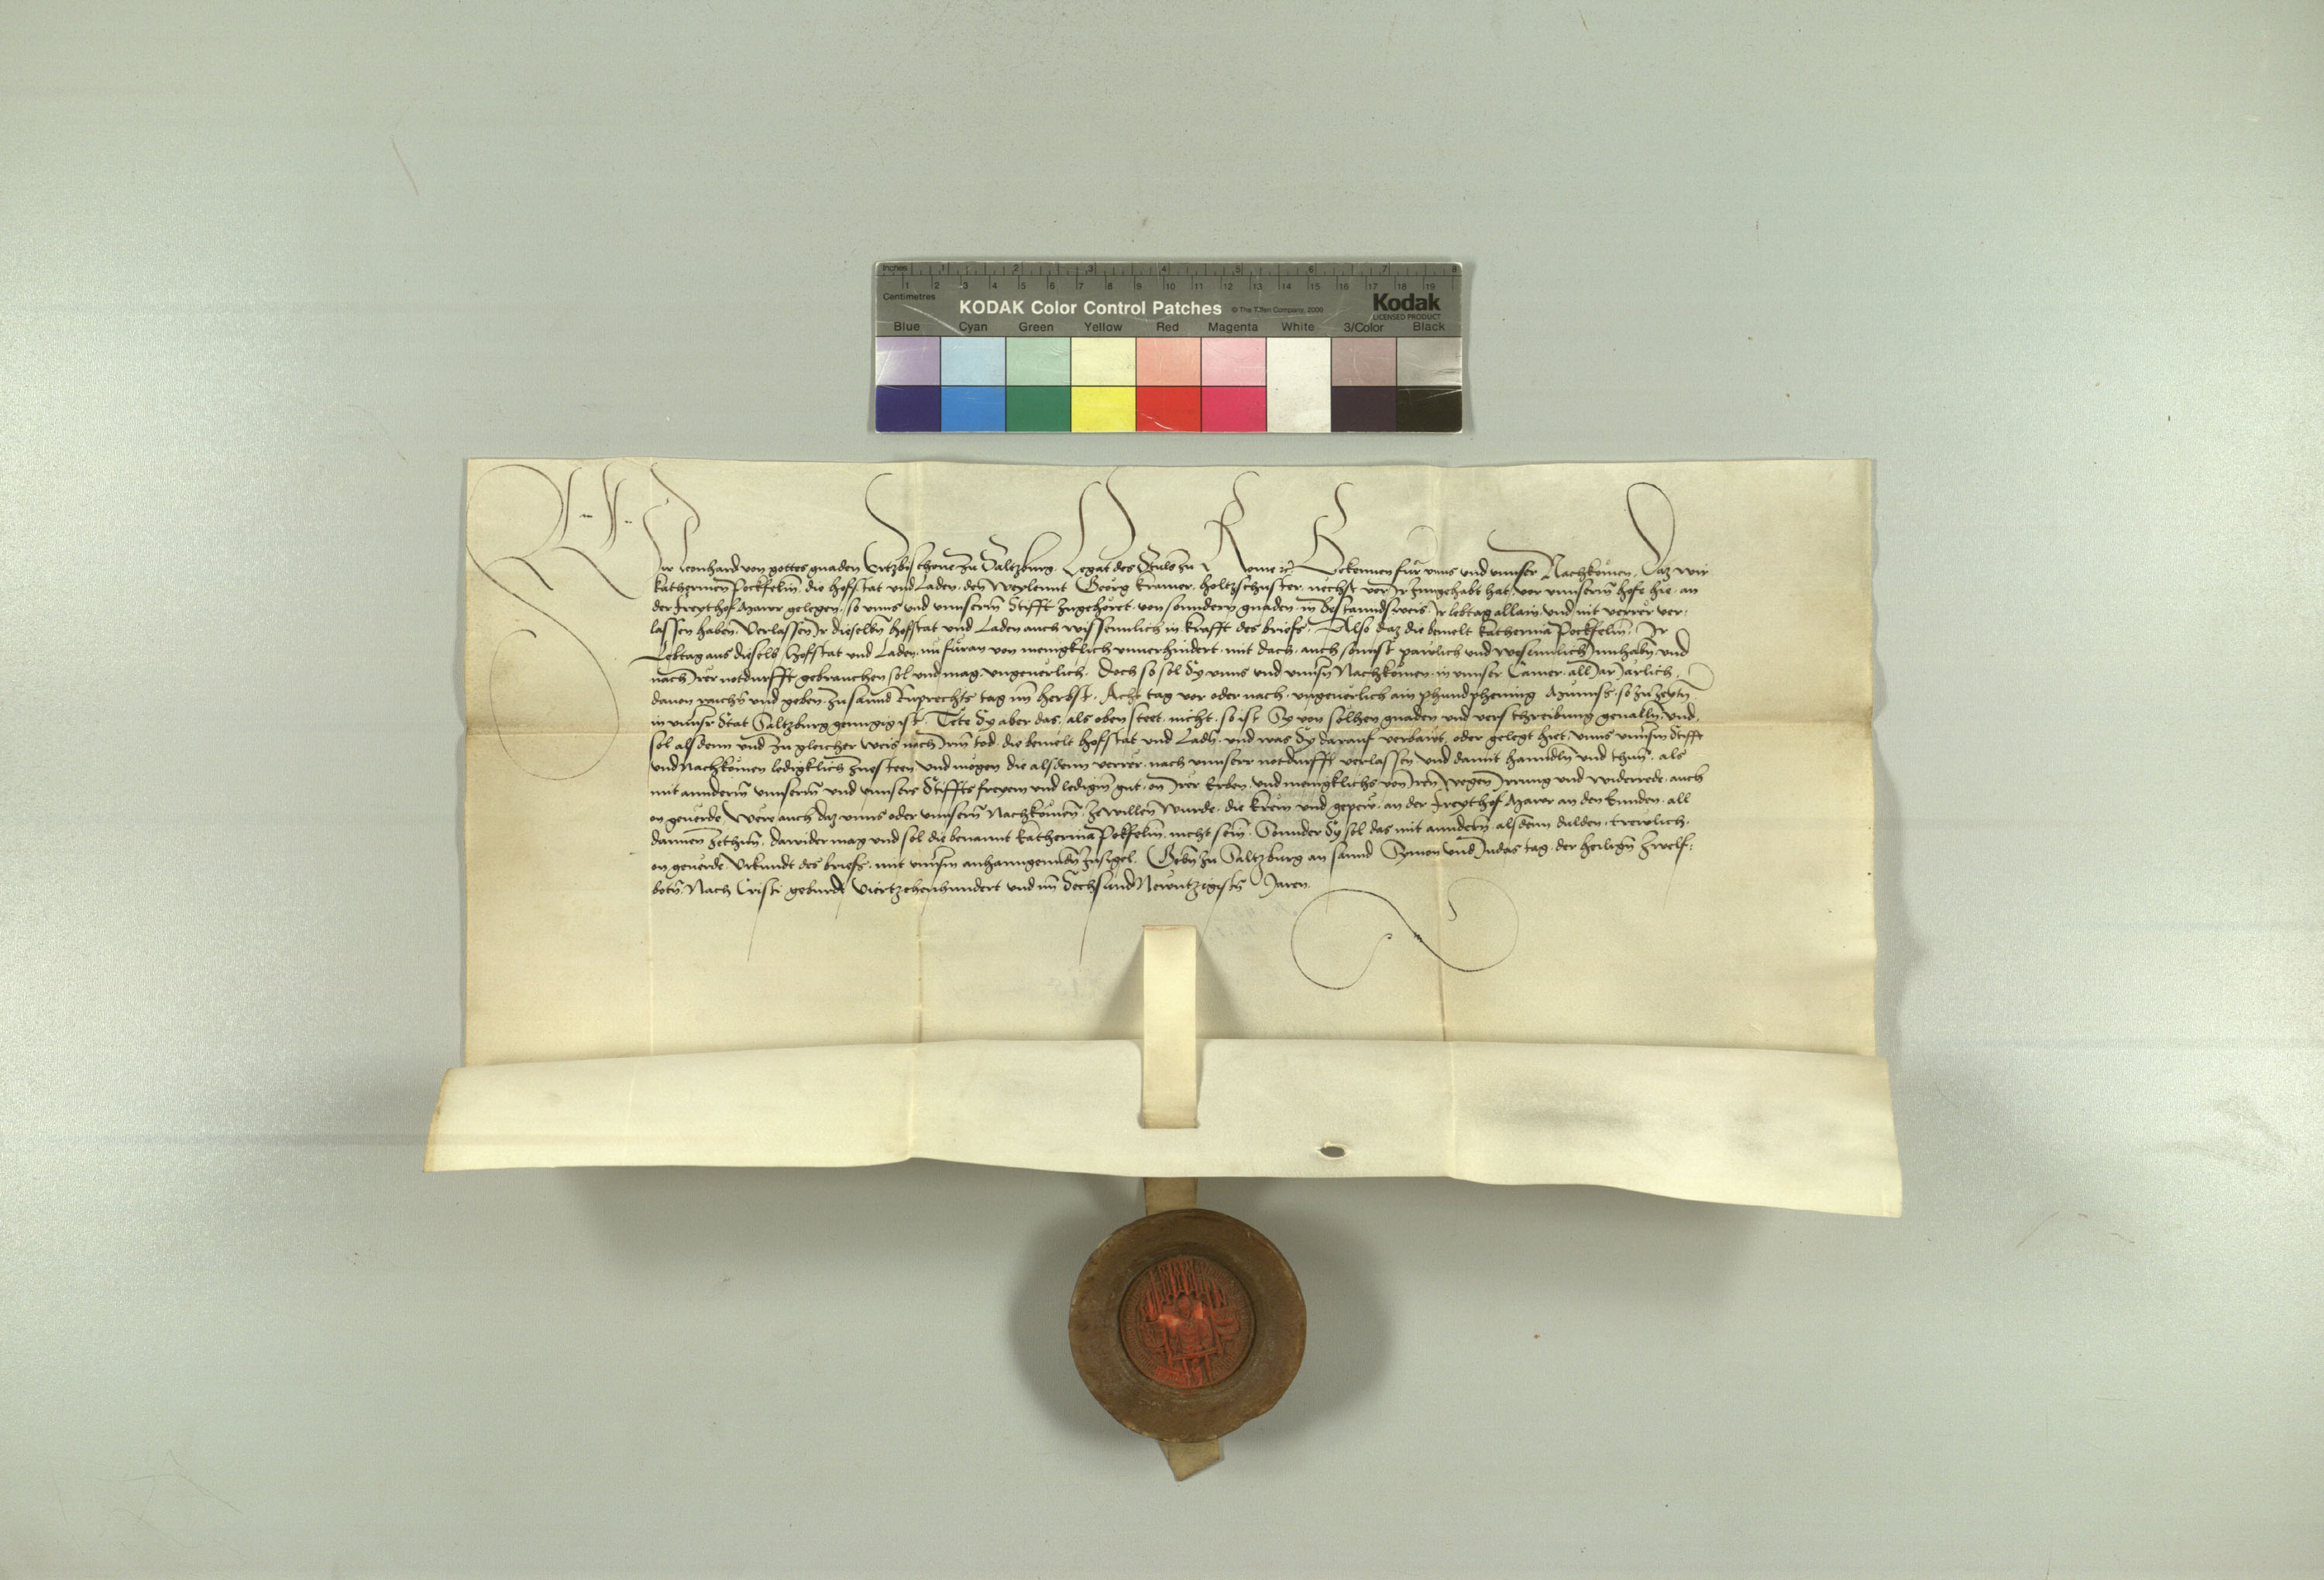 Inches 1 2 3 4 5 6 7 8
1 2 3 4 5 6 7 8 9 10 11 12 13 14 15 16 17 18 19
Centimetres
KODAK Color Control Patches © The Tiffen Company, 2000 Kodak
LICENSED PRODUCT
Blue Cyan Green Yellow Red Magenta White 3/Color Black
Wir Leonhard von gottes gnaden Ertzbischoue zu Saltzburg. Legat des Stuls zu Rome etc. Bekennen für vnns vnd vnnser Nachkomen. Daz wir
Kathermen Pockfelin. die hofstat vnd Laden. den weylennt Georg kramer. holtzschuster. nechst vor Ir Inngehabt hat. vor vnnserm hofe hie. an
der Freythof Mawr gelegen. so vnns vnd vnnserm Stifft zugehöret. von sonndern gnaden. in bestanndsweis. Ir lebtag allain. vnd nit verrer ver,
lassen haben. Verlassen Ir dieselbn hofstat vnd Laden auch wissenntlich in krafft des briefs. Also daz die bemelt Katherina Pockfelin. Ir
Lebtag aus dieselb Hofstat vnd Laden. nu füran von menigklich vnuerhindert. mit dach. auch sonnst päwlich vnd wesennlich Innhabn vnd
nach Irer notdurfft gebrauchen sol vnd mag. vngeuerlich. Doch so sol Sy vnns vnd vnnsern Nachkomen. in vnnser Camer. all Jar Järlich.
dauon raichn vnd geben. zu sannd Ruprechts tag im herbst. Acht tag vor oder nach. vngeuerlich ain phund phening Münnss. so zu zeytn
in vnnser Stat Saltzburg genngig ist. Tete Sy aber das. als oben steet. nicht. so ist Sy von solhen gnaden vnd verschreibung geualln. vnd.
sol alsdenn vnd zu gleicher weis nach Irm tod. die bemelt hofstat vnd Ladn. vnd was Sy darauf verbawt. oder gelegt hiet. vnns vnnserm Stifft
vnd Nachkomen ledigklich zuesteen vnd mögen die alsdenn verrer. nach vnnserr notdurfft verlassen vnd damit hanndln vnd thun. als
mit annderm vnnserm vnd vnnsers Stiffts freyem vnd ledigem gut. on Irer Erben. vnd menigklichs von Iren wegen Irrung vnd widerrede. auch
on geuerde. Were auch daz vnns oder vnnsern Nachkomen. ze willen wurde. die krem vnd gepew. an der Freythof Mawr an den Ennden. all
dannen zethun. dawider mag vnd sol die benannt Katherina Pokfelin. nicht sein. Sonnder Sy sol das mit anndern. alsdenn dulden. trewlich.
on geuerde. Vrkundt des briefs. mit vnnserm anhanngenndn Insigel. Gebn zu Saltzburg an sannd Symon vnd Judas tag. der heiligen zwelf,
botn. Nach Cristi geburde Viertzehenhundert vnd im Sechsundnewntzigistn Jaren.